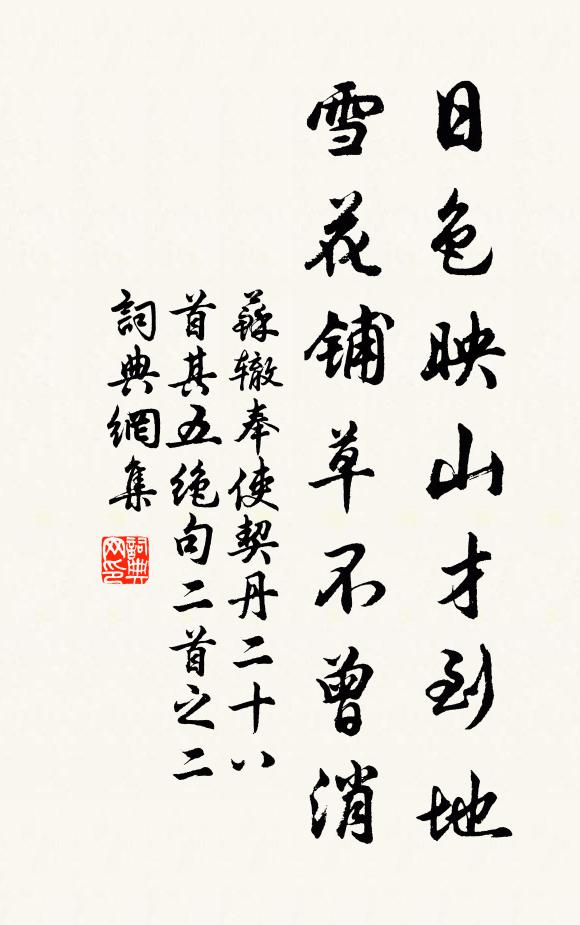 日色映山才到地
雪花铺草不曾消
蘇辙奉使契丹二十八
首其五绝句二首之二
詞典網集
詞典
网印